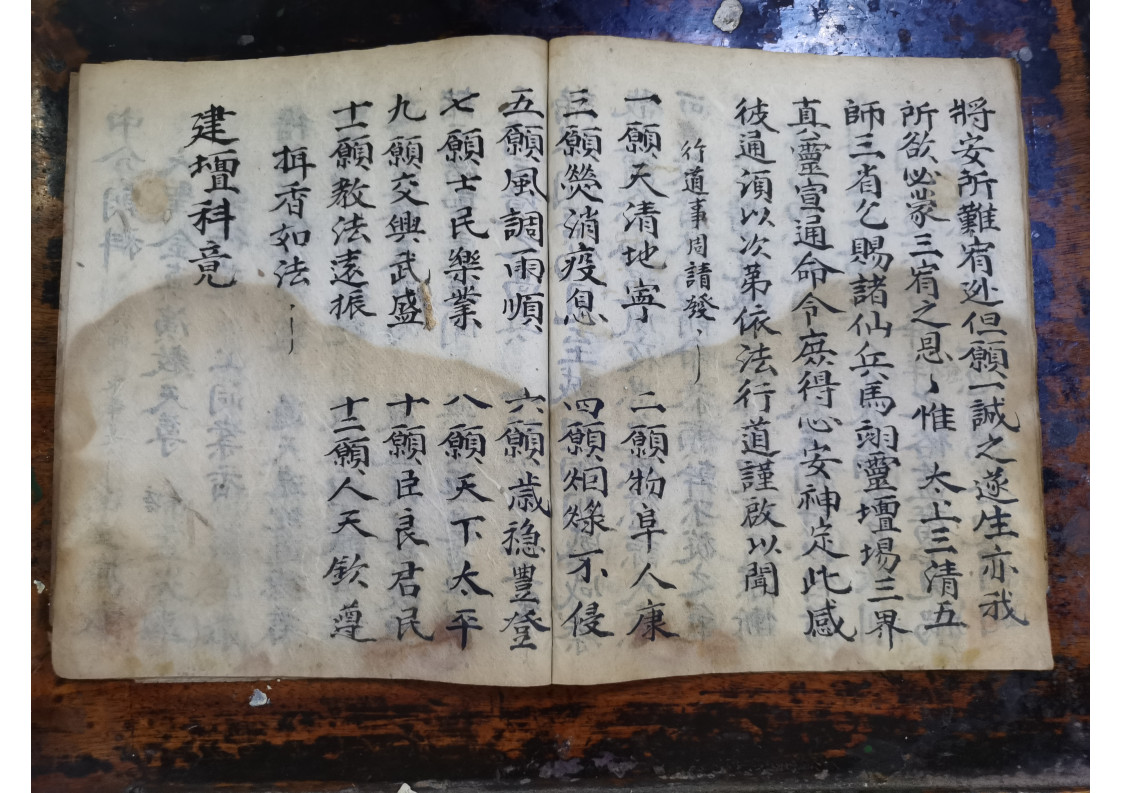 將安所難宥处但願一誠之遂生亦我
所欲必蒙三宥之恩〻惟 太上三清五
師三省乞賜諸仙兵馬翊靈壇場三界
真靈宣通命令庶得心安神定此感
彼通湏以次第依法行道謹啟以聞
行道事周請發〻
一願天清地寧 二願物阜人康
三願熒消疫息 四願烟燥不侵
五願風調雨順 六願歳穏豊登
七願士民樂業 八願天下太平
九願交興武盛 十願臣良君民
十一願教法遠振 十二願人天欽遵
拜香如法
建壇科竟